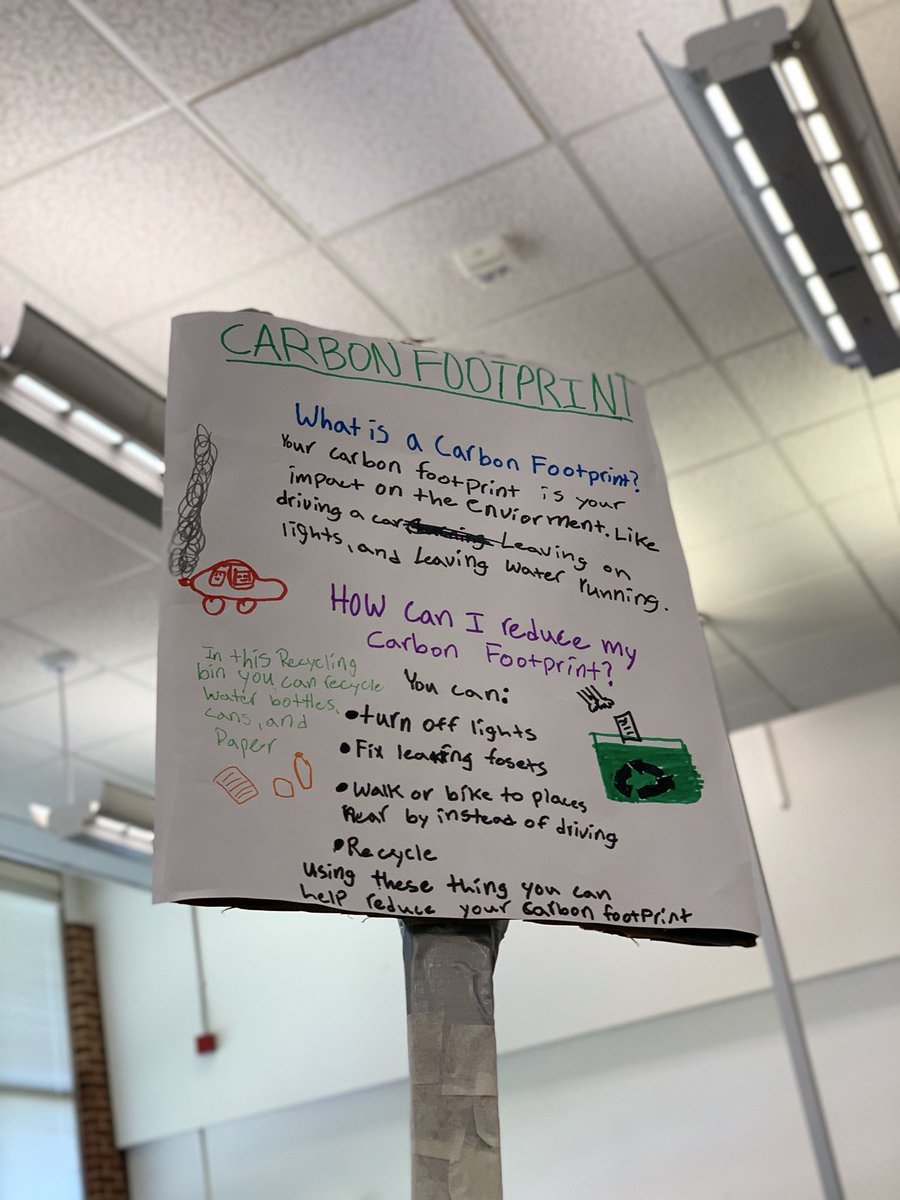 CARBON FOOTPRINT
What is a Carbon Footprint?
Your carbon footprint is your
impact on the Enviorment. Like
driving a car Leaving on
lights, and Leaving water running.
How can I reduce my
Carbon Footprint?
In this Recycling
bin you can recycle
water bottles,
cans, and
Paper
You can:
•turn off lights
•Fix leaking fosets
•Walk or bike to places
near by instead of driving
•Recycle
using these thing you can
help reduce your carbon footprint